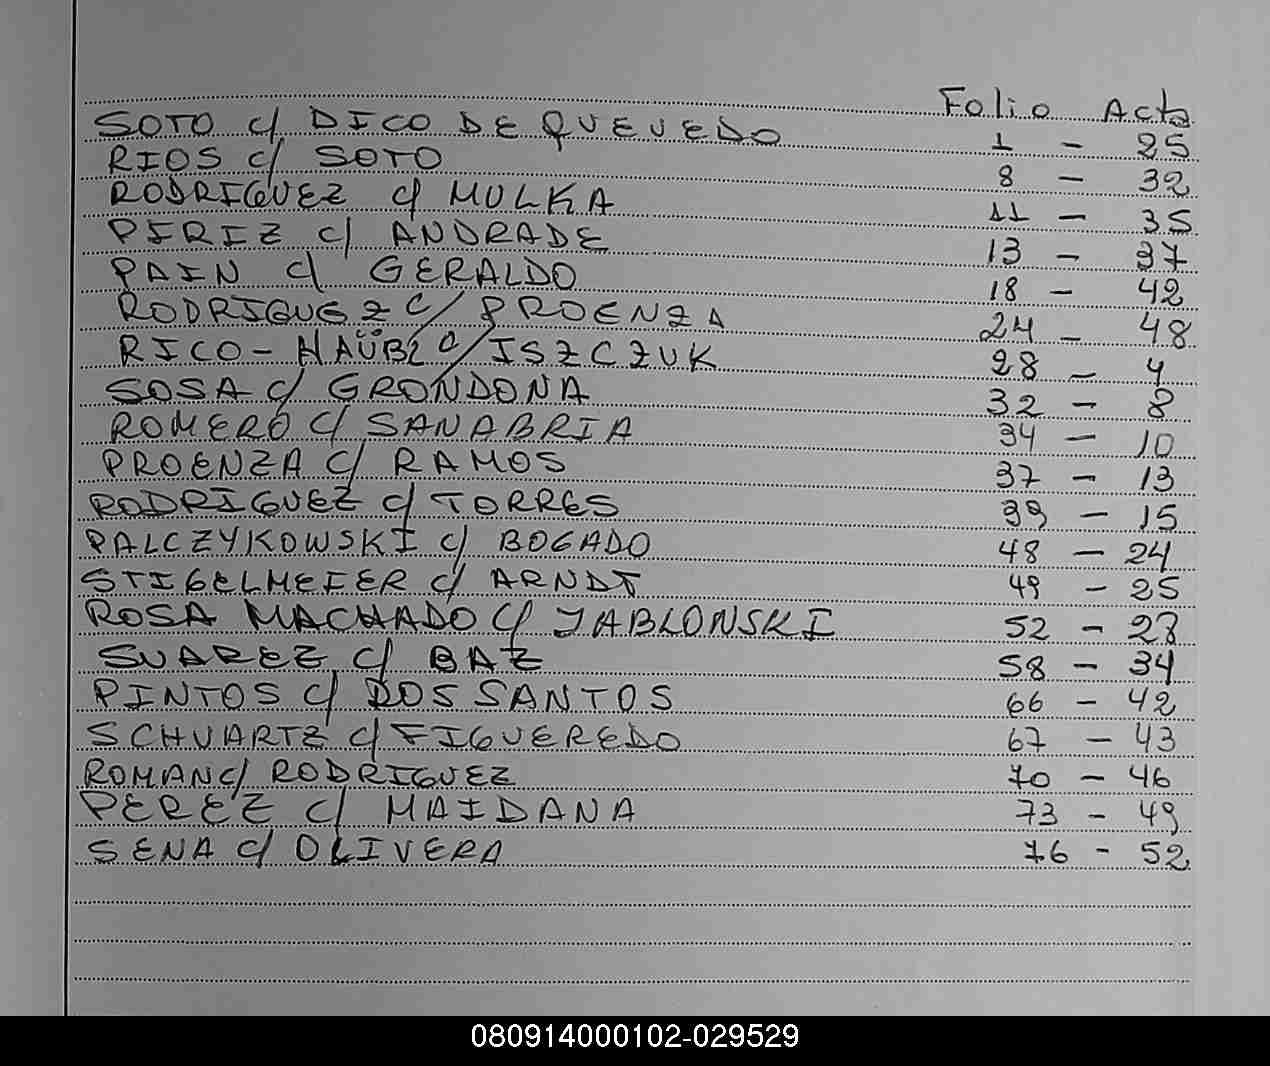 Folio Acta
SOTO c/ DICO DE QUEVEDO 1 - 25
RIOS c/ SOTO 8 - 32
RODRIGUEZ c/ MULKA 11 - 35
PIRIZ c/ ANDRADE 13 - 37
PAIN c/ GERALDO 18 - 42
RODRIGUEZ c/ PROENZA 24 - 48
RICO-HAÜBL c/ ISZCZUK 28 - 4
SOSA c/ GRONDONA 32 - 8
ROMERO c/ SANABRIA 34 - 10
PROENZA c/ RAMOS 37 - 13
RODRIGUEZ c/ TORRES 39 - 15
PALCZYKOWSKI c/ BOGADO 48 - 24
STIGELMEIER c/ ARNDT 49 - 25
ROSA MACHADO c/ JABLONSKI 52 - 28
SUAREZ c/ BAEZ 58 - 34
PINTOS c/ DOS SANTOS 66 - 42
SCHVARTZ c/ FIGUEREDO 67 - 43
ROMAN c/ RODRIGUEZ 70 - 46
PEREZ c/ MAIDANA 73 - 49
SENA c/ OLIVERA 76 - 52
080914000102-029529